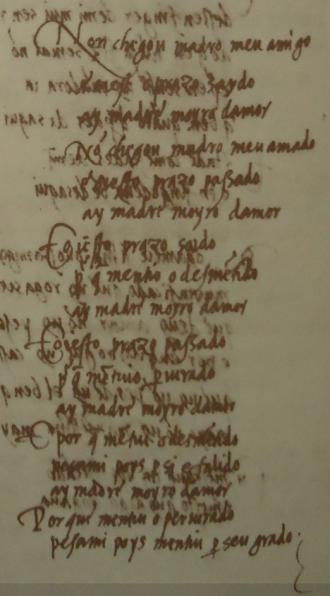 Non chegou madre meu amigo
e oiest o prazo saydo
ay madre moyro damor
Nō chegou madre meu amado
e oiesto prazo passado
ay madre moyro damor
E oiesto prazo saido
p q̄ mentio o desmētido
ay madre moyro damor
E oiesto prazo passado
p q̄ mētiuo periurado
ay madre moyro damor
E por q̄ mētiu o desmētido
pesami poys p si e falido
ay madre moyro damor
Por quē mentiu o periurado
pesami poys mentiu p seu grado.